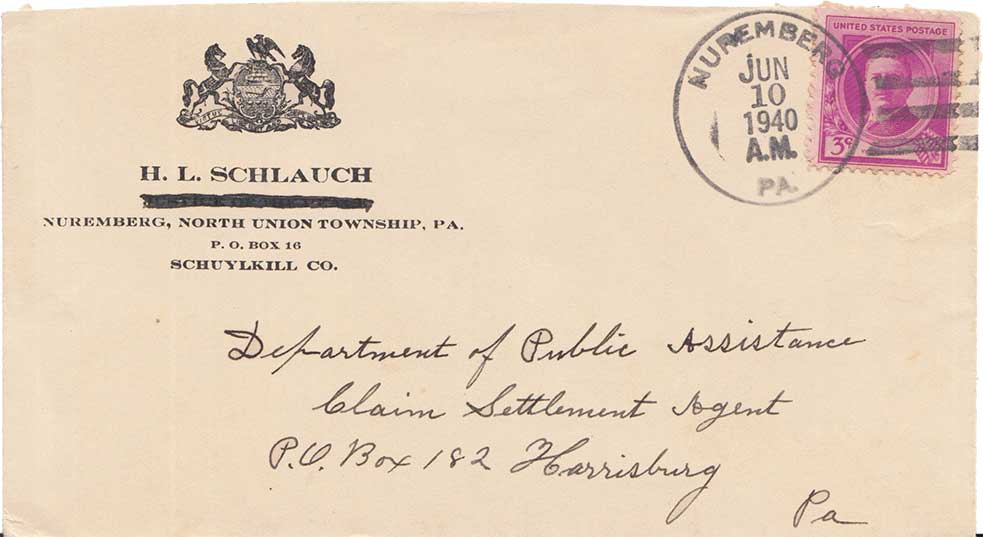 H. L. SCHLAUCH
NUREMBERG, NORTH UNION TOWNSHIP, PA.
P. O. BOX 16
SCHUYLKILL CO.
NUREMBERG
JUN
10
1940
A.M.
PA.
UNITED STATES POSTAGE
3c
Department of Public Assistance
Claim Settlement Agent
P.O. Box 182 Harrisburg
Pa